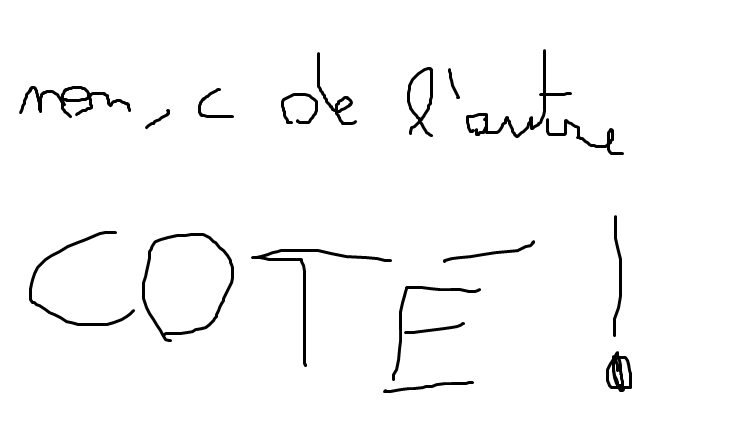 non, c de l'autre
COTÉ !